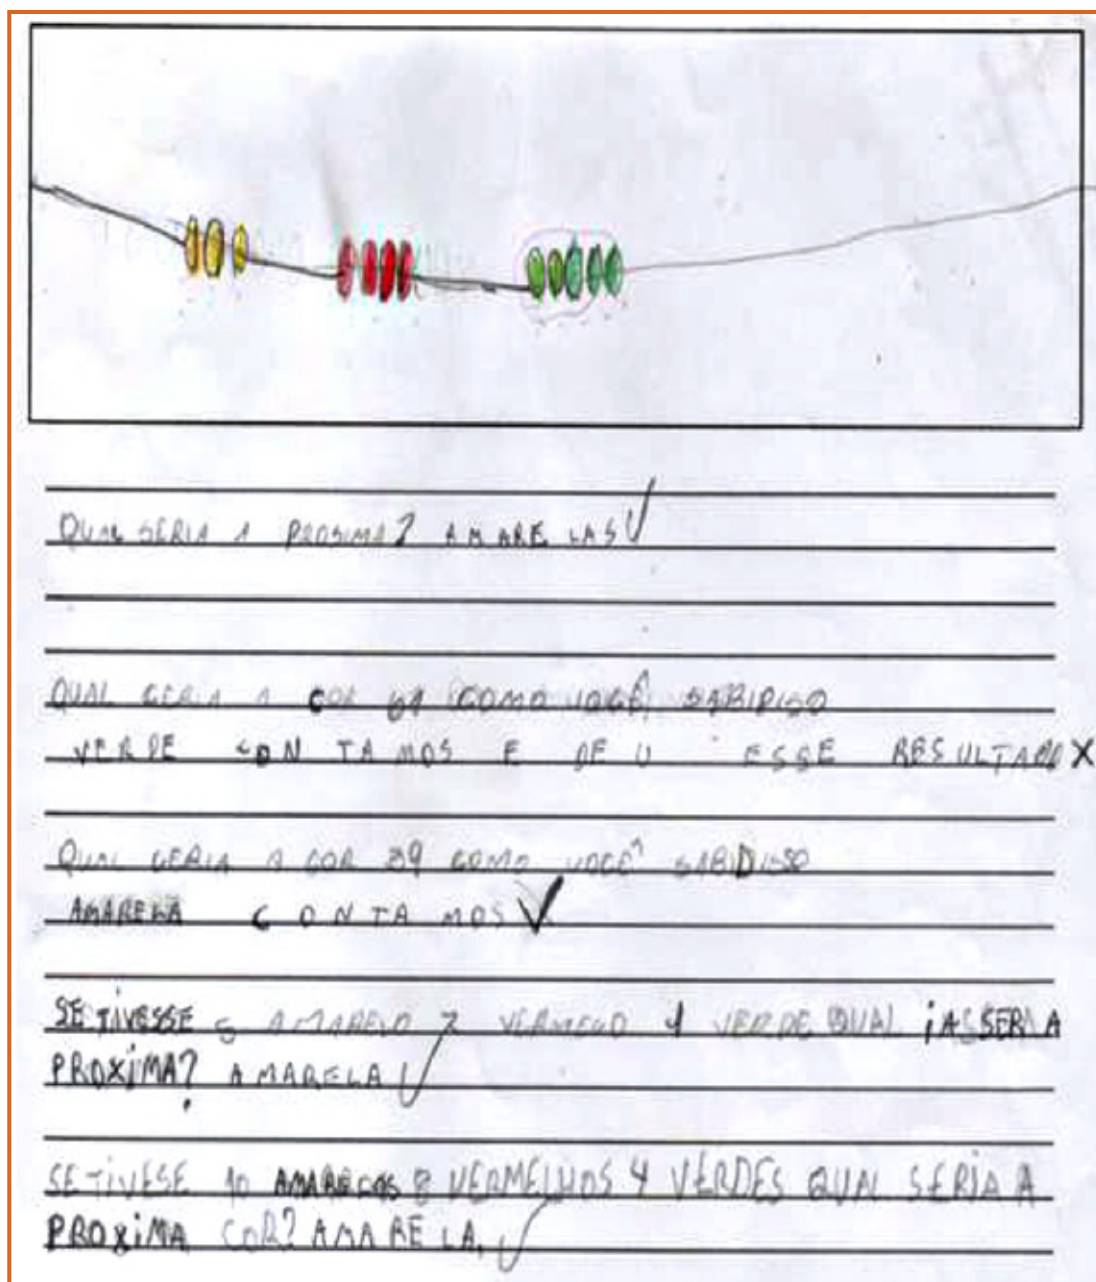 QUAL SERIA A PROSIMA? AMARELAS
QUAL SERIA A COR 61 COMO VOCÊ SABIDISO
VERDE CONTAMOS E DEU ESSE RESULTADO X
QUAL SERIA A COR 39 COMO VOCÊ SABIDISSO
AMARELA CONTAMOS
SE TIVESSE 5 AMARELO 7 VERMELO 4 VERDE QUAL SERIA A
PROXIMA? AMARELA
SE TIVESE 10 AMARELAS 8 VERMELHOS 4 VERDES QUAL SERIA A
PROXIMA COR? AMARELA.